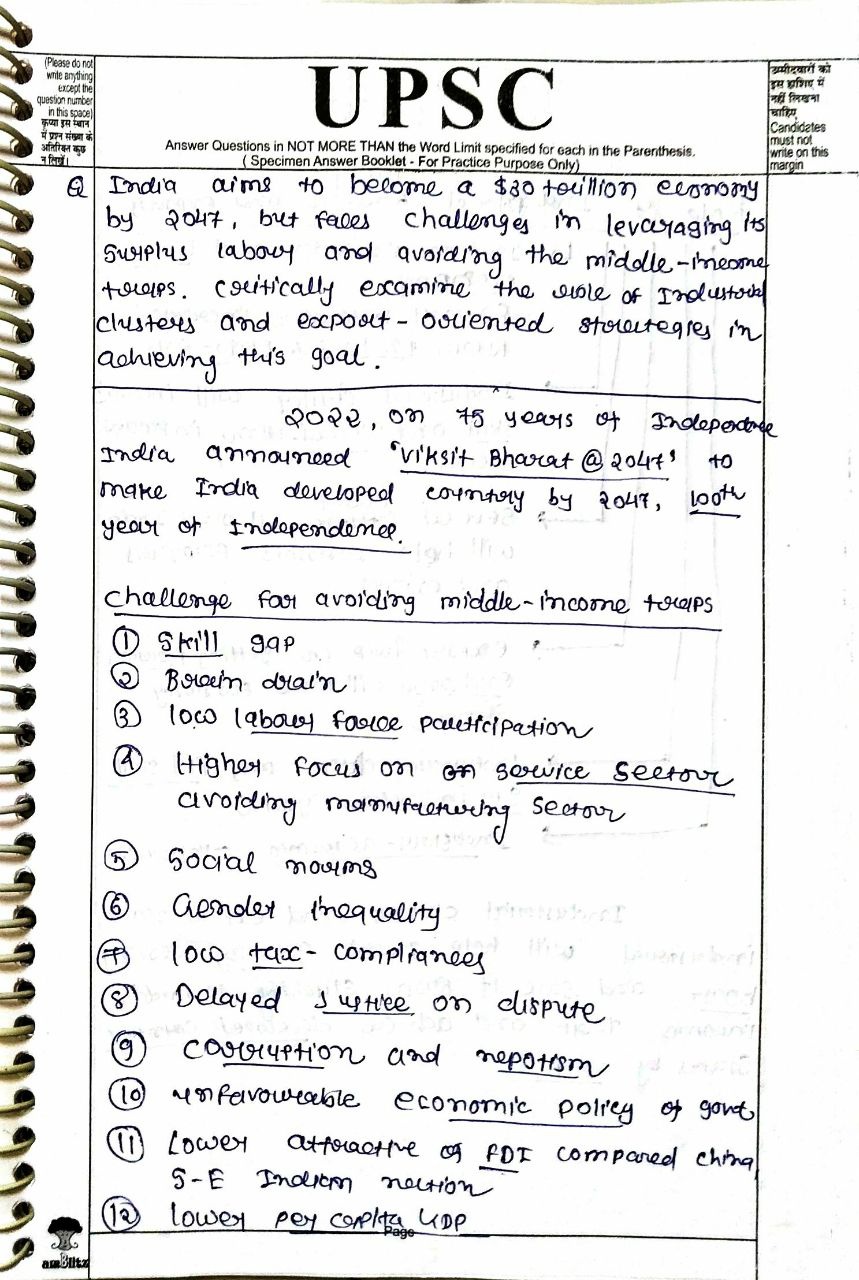 (Please do not
write anything
except the
question number
in this space)
कृपया इस स्थान
में प्रश्न संख्या के
अतिरिक्त कुछ
न लिखें।
UPSC
Answer Questions in NOT MORE THAN the Word Limit specified for each in the Parenthesis.
( Specimen Answer Booklet - For Practice Purpose Only)
उम्मीदवारों को
इस हाशिए में
नहीं लिखना
चाहिए
Candidates
must not
write on this
margin
Q India aims to become a $30 trillion economy
by 2047, but faces challenges in leveraging its
surplus labour and avoiding the middle-income
traps. critically examine the role of Industrial
clusters and export-oriented strategies in
achieving this goal.
2022, on 75 years of Independence
India announced 'Viksit Bharat @ 2047' to
make India developed country by 2047, 100th
year of Independence.
challenge for avoiding middle-income traps
① Skill gap
② Brain drain
③ low labour force participation
④ Higher focus on service sector
avoiding manufacturing sector
⑤ Social norms
⑥ Gender inequality
⑦ low tax-compliances
⑧ Delayed justice on dispute
⑨ corruption and nepotism
⑩ unfavourable economic policy of govt
⑪ Lower attractive of FDI compared china,
S-E Indian nation
⑫ lower per capita GDP
Page